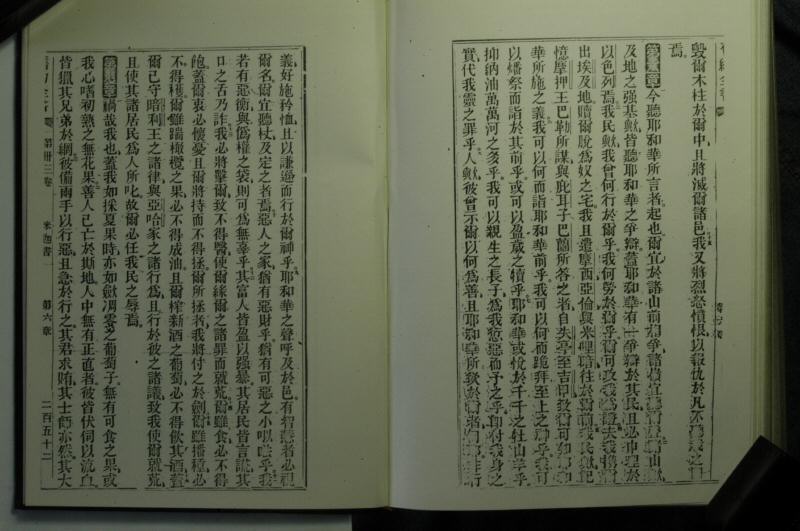 毀爾木柱於爾中且將滅爾諸邑我又將烈怒憤恨以報仇於凡不
焉
今聽耶和華所言者起也爾宜於諸山前
及地之强基歟皆聽耶和華之爭辯蓋耶和華有一爭辯於其民且必
以色列焉我民歟我曾何行於爾乎我何勞於爾乎爾可
出埃及地贖爾脫爲奴之宅我且遣摩西亞倫與米哩暗往於爾前我民歟
憶摩押王巴勒所謀與庇耳子巴蘭所答之者自失亭至吉
華所施之義我可以何而詣耶和華前乎我可以何而跪拜至上之神乎我可
以燔祭而詣於其前乎或可以盈歲之犢乎耶和華或悅於千千之牡山羊乎
抑納油萬萬河之多乎我可以親生之長子爲我愆惡而予之乎卽將我身之
實代我靈之罪乎人歟彼曾示爾以何爲善且耶和華所
義好施矜恤且以謙遜而行於爾神乎耶和華之聲呼及於邑有智慧者必視
爾名爾宜聽杖及定之者焉惡人之家猶有惡財乎猶有可惡之小
若有惡衡與僞權之袋則可爲無辜乎其富人皆盈以强暴其居民皆言謊其
口之舌乃詐我必將擊爾致不得醫使爾緣爾之諸罪而就荒爾雖食必不得
飽蓋爾衷必懷憂且爾將持而不得拯爾所拯者我將付之於劍爾雖播種必
不得穫爾雖踹橄欖之果必不得成油且爾榨新酒之葡萄必不得飲其酒蓋
爾已守暗利王之諸律與亞哈家之諸行爲且行於彼之諸議致我使爾就荒
且使其諸居民爲人所叱故爾必任我民之辱焉
禍哉我也蓋我如採夏果時亦如斂凋零之葡萄子無有可食之果或
我心嗜初熟之無花果善人已亡於斯地人中無有正直者彼皆伏伺以流血
皆獵其兄弟於網彼備兩手以行惡且急於行之其君求賄其士師亦然其大
第卌三卷 米迦書 第六章 二百五十二